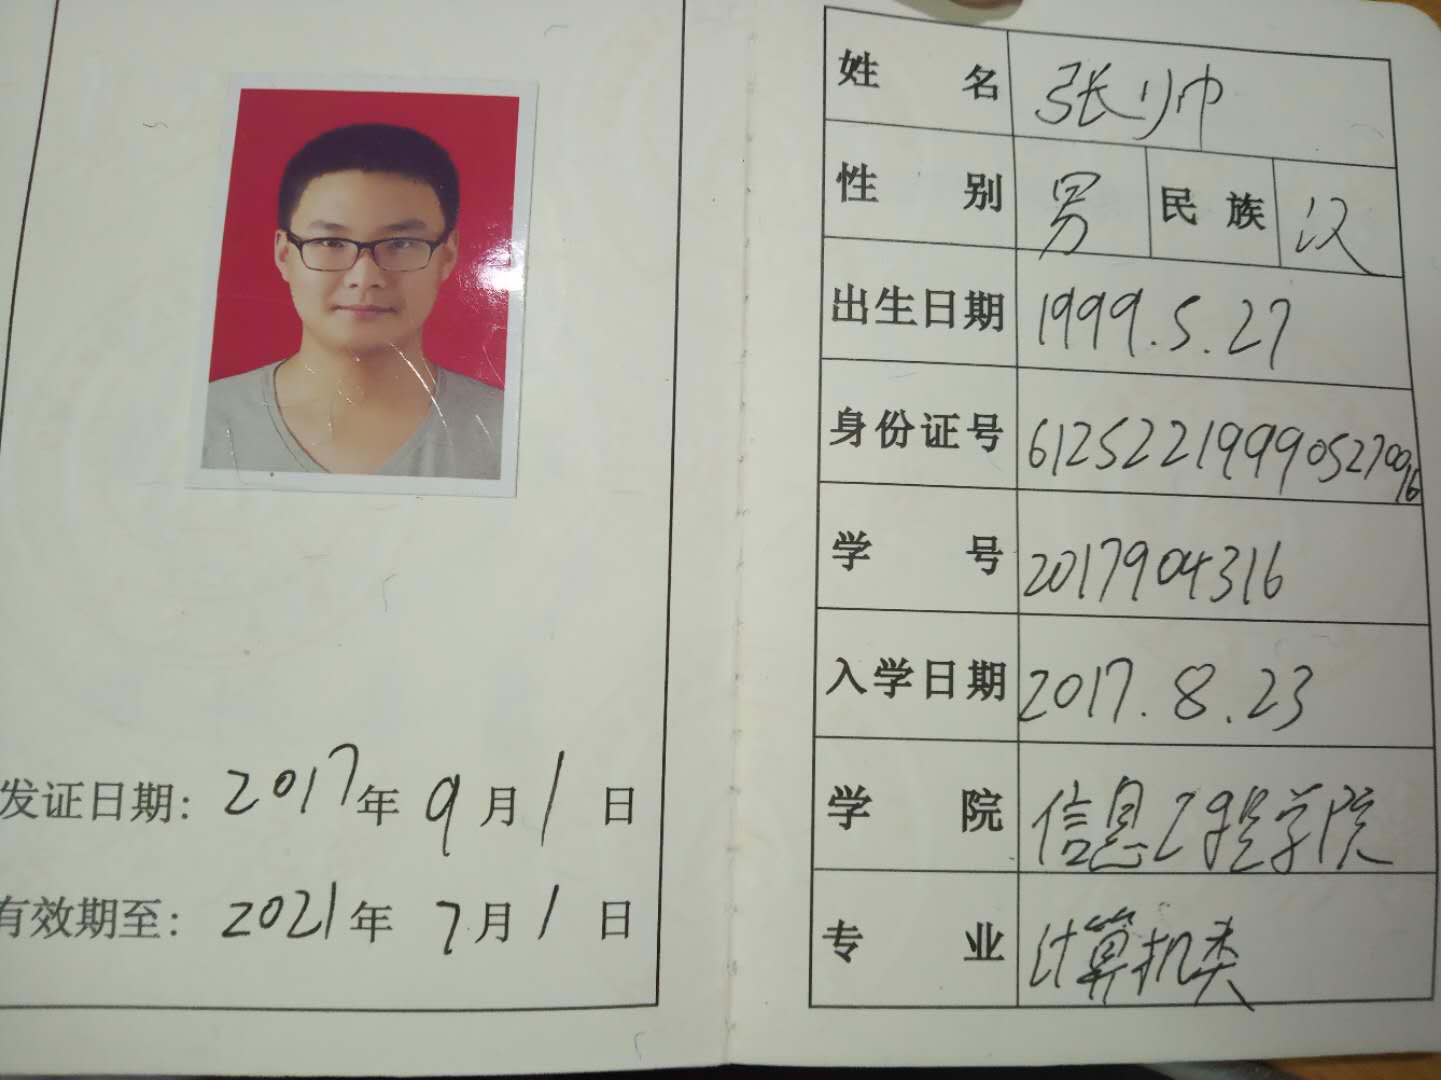 发证日期: 2017年 9月1日
有效期至: 2021年 7月1日
姓名 张帅
性别 男 民族 汉
出生日期 1999.5.27
身份证号 612522199905270016
学号 2017904316
入学日期 2017.8.23
学院 信息工程学院
专业 计算机类